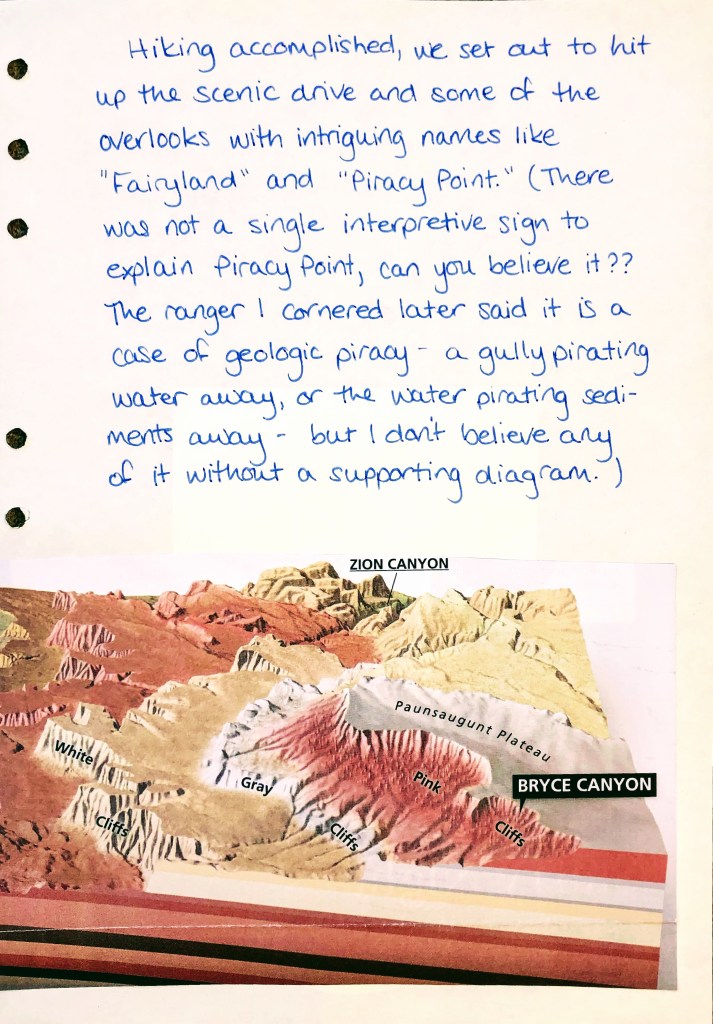 Hiking accomplished, we set out to hit
up the scenic drive and some of the
overlooks with intriguing names like
"Fairyland" and "Piracy Point." (There
was not a single interpretive sign to
explain Piracy Point, can you believe it??
The ranger I cornered later said it is a
case of geologic piracy - a gully pirating
water away, or the water pirating sedi-
ments away - but I don't believe any
of it without a supporting diagram.)
ZION CANYON
Paunsaugunt Plateau
White
Gray
Pink
BRYCE CANYON
Cliffs
Cliffs
Cliffs